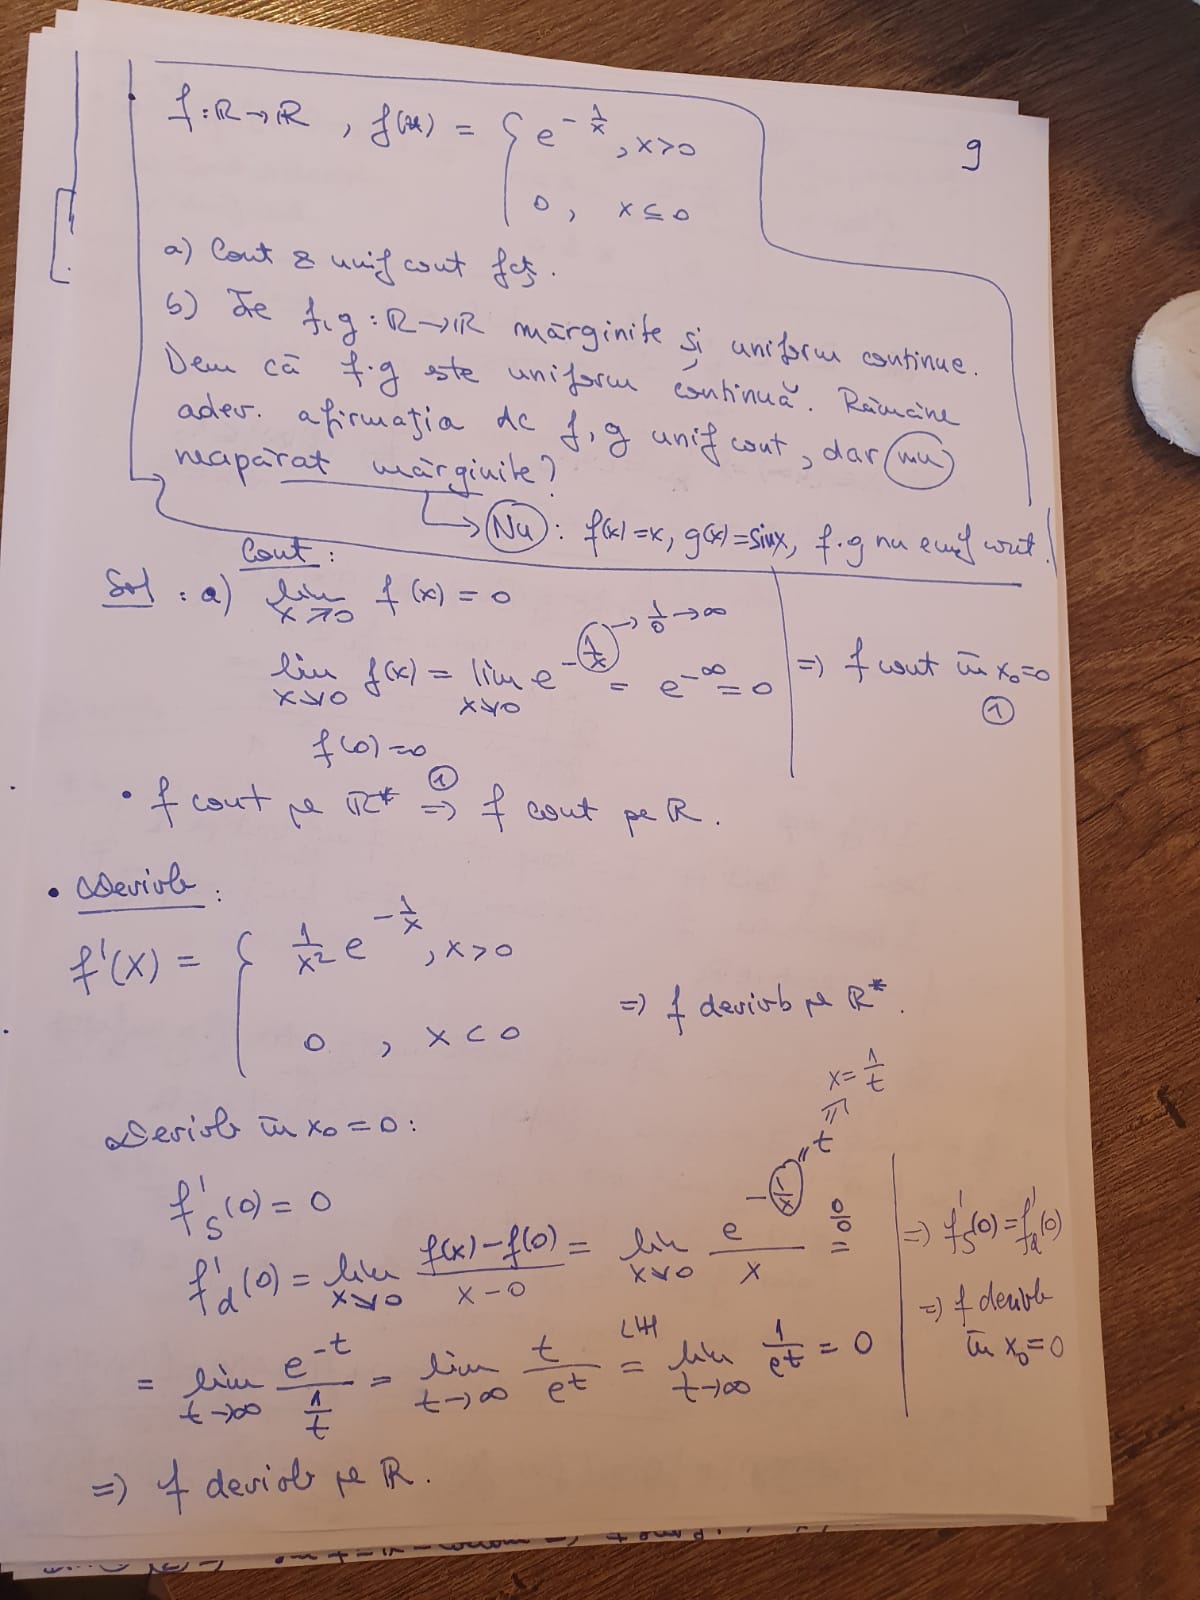 9
f:ℝ→ℝ, f(x) = { e^{-1/x}, x>0
0, x≤0
a) Cont & unif cont fcț.
b) Fie f,g:ℝ→ℝ mărginite și uniform continue.
Dem că f·g este uniform continuă. Rămâne
adev. afirmația dc f,g unif cont, dar nu
neapărat mărginite?
→ Nu: f(x)=x, g(x)=sinx, f·g nu e unif cont!
Cont:
Sol: a) lim_{x↗0} f(x) = 0
lim_{x↘0} f(x) = lim_{x↘0} e^{-1/x} = e^{-∞} = 0 → 1/0 → ∞
f(0)=0
=> f cont în x₀=0 ①
• f cont pe ℝ* ①=> f cont pe ℝ.
• Derivb:
f'(x) = { 1/x² e^{-1/x}, x>0
0, x<0
=> f derivb pe ℝ*.
Derivb în x₀=0:
f's(0) = 0
f'd(0) = lim_{x↘0} (f(x)-f(0))/(x-0) = lim_{x↘0} e^{-1/x}/x = 0/0
=t => x=1/t
= lim_{t→∞} e^{-t}/(1/t) = lim_{t→∞} t/e^t =(L'H) lim_{t→∞} 1/e^t = 0
=> f's(0)=f'd(0)
=> f derivb
în x₀=0
=> f derivb pe ℝ.